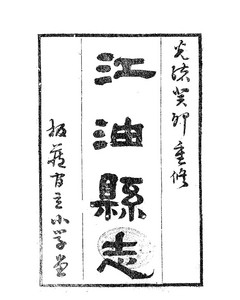 光緒癸卯重修
江油縣志
板藏官立小學堂